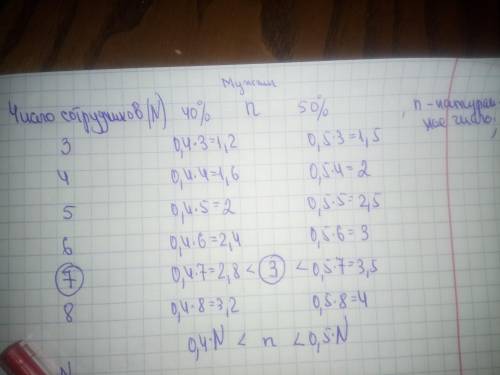 Мужчин
Число сотрудников (N) 40% n 50% , n - натураль
ное число;
3 0,4·3=1,2 0,5·3=1,5
4 0,4·4=1,6 0,5·4=2
5 0,4·5=2 0,5·5=2,5
6 0,4·6=2,4 0,5·6=3
7 0,4·7=2,8 < 3 < 0,5·7=3,5
8 0,4·8=3,2 0,5·8=4
0,4·N < n < 0,5·N